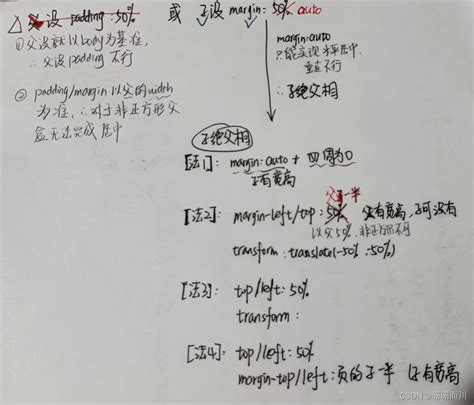 △ 父设 padding:50% 或 子设 margin:50% auto
①父设就以body为基准,
∴父设padding 不行
② padding/margin 以父的width
为准,∴对于非正方形父
盒无法完成居中
margin:auto
只能实现水平居中,
垂直不行
∴子绝父相
子绝父相
[法1]: margin:auto + 四周为0
子有宽高
父一半
[法2]: margin-left/top:50% 父有宽高,子可没有
以父50%,非正方形不可
transform:translate(-50% -50%)
[法3]: top/left:50%
transform:
[法4]: top/left:50%
margin-top/left:负的子一半 子有宽高
CSDN @珊珊而川